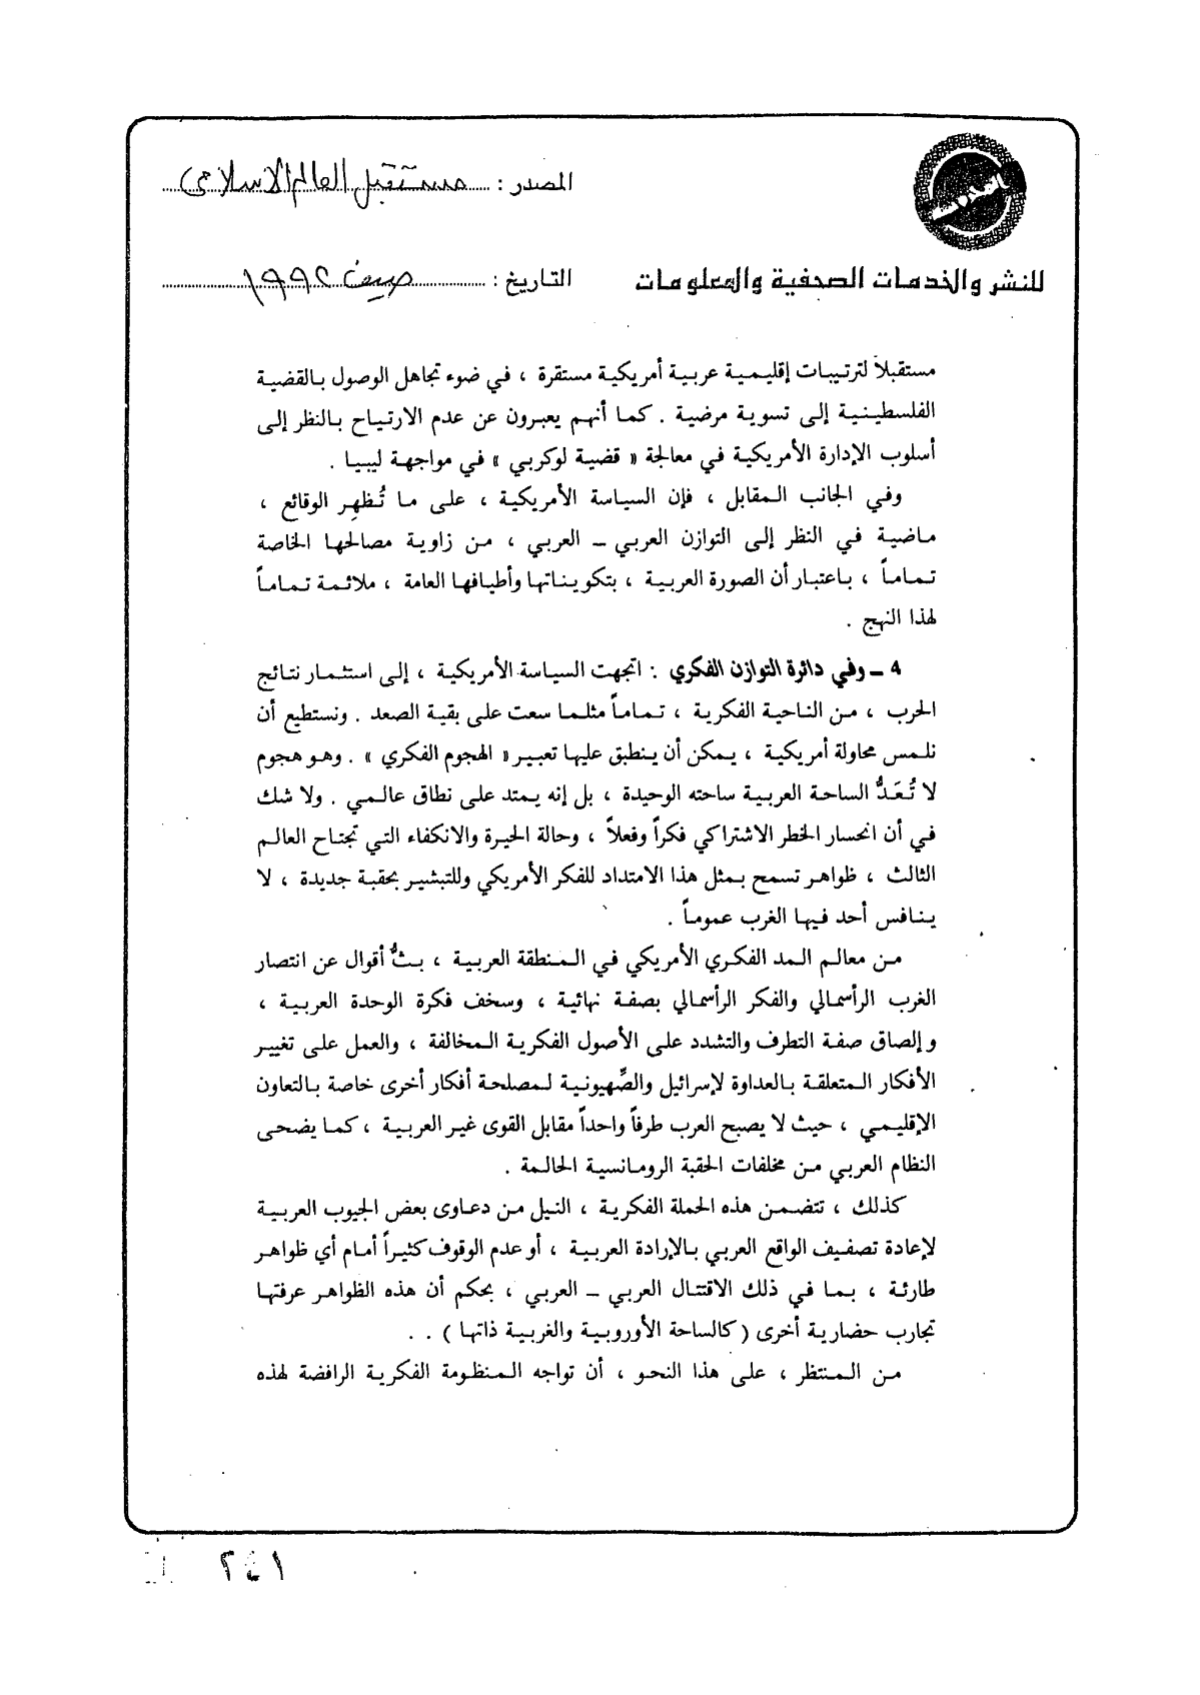 المصدر : مستقبل العالم الاسلامى
للنشر والخدمات الصحفية والمعلومات
التاريخ : صيف ١٩٩٢
مستقبلاً لترتيبات إقليمية عربية أمريكية مستقرة ، في ضوء تجاهل الوصول بالقضية
الفلسطينية إلى تسوية مرضية . كما أنهم يعبرون عن عدم الارتياح بالنظر إلى
أسلوب الإدارة الأمريكية في معالجة « قضية لوكربي » في مواجهة ليبيا .
وفي الجانب المقابل ، فإن السياسة الأمريكية ، على ما تُظهِر الوقائع ،
ماضية في النظر إلى التوازن العربي ـ العربي ، من زاوية مصالحها الخاصة
تماماً ، باعتبار أن الصورة العربية ، بتكويناتها وأطيافها العامة ، ملائمة تماماً
لهذا النهج .
4 ـ وفي دائرة التوازن الفكري : اتجهت السياسة الأمريكية ، إلى استثمار نتائج
الحرب ، من الناحية الفكرية ، تماماً مثلما سعت على بقية الصعد . ونستطيع أن
نلمس محاولة أمريكية ، يمكن أن ينطبق عليها تعبير « الهجوم الفكري » . وهو هجوم
لا تُعَدُّ الساحة العربية ساحته الوحيدة ، بل إنه يمتد على نطاق عالمي . ولا شك
في أن انحسار الخطر الاشتراكي فكراً وفعلاً ، وحالة الحيرة والانكفاء التي تجتاح العالم
الثالث ، ظواهر تسمح بمثل هذا الامتداد للفكر الأمريكي وللتبشير بحقبة جديدة ، لا
ينافس أحد فيها الغرب عموماً .
من معالم المد الفكري الأمريكي في المنطقة العربية ، بثُّ أقوال عن انتصار
الغرب الرأسمالي والفكر الرأسمالي بصفة نهائية ، وسخف فكرة الوحدة العربية ،
وإلصاق صفة التطرف والتشدد على الأصول الفكرية المخالفة ، والعمل على تغيير
الأفكار المتعلقة بالعداوة لإسرائيل والصِّهيونية لمصلحة أفكار أخرى خاصة بالتعاون
الإقليمي ، حيث لا يصبح العرب طرفاً واحداً مقابل القوى غير العربية ، كما يضحى
النظام العربي من مخلفات الحقبة الرومانسية الحالمة .
كذلك ، تتضمن هذه الحملة الفكرية ، النيل من دعاوى بعض الجيوب العربية
لإعادة تصفيف الواقع العربي بالإرادة العربية ، أو عدم الوقوف كثيراً أمام أي ظواهر
طارئة ، بما في ذلك الاقتتال العربي ـ العربي ، بحكم أن هذه الظواهر عرفتها
تجارب حضارية أخرى ( كالساحة الأوروبية والغربية ذاتها ) . .
من المنتظر ، على هذا النحو ، أن تواجه المنظومة الفكرية الرافضة لهذه